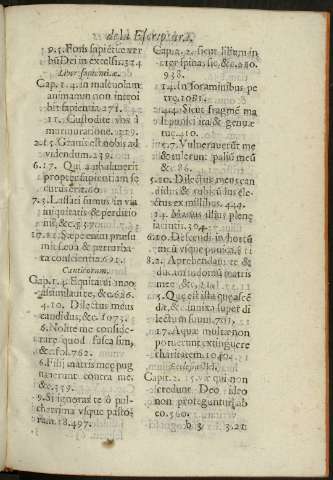 de la Escriptura.
9.5. Fons sapiétiæ ver
bū Dei in excelsi. 324.
Liber sapientiæ.
Cap. 1.4. in maleuolam
animam non introi
bit sapientia. 271.
11. Custodite vos à
murmuratione. 229.
2.15. Grauis est nobis ad
videndum. 239.
6.17. Qui
propter sapientiam se
curus erit. 60.
7.3. Lassati sumus in via
iniquitatis & perditio
nis, &c. 537.
17. Sæpe enim præsu
mit sæua & perturba
ta conscientia. 621.
Canticorum.
Cap. 1.4. Equitatui meo
assimilaui te, &c. 626.
4.10. Dilectus meus
candidus, &c. 1073.
6. Nolite me conside-
rare quod fusca sim,
&c. fol. 762.
6. Filij matris meę pug
nauerunt contra me,
&c. 359.
9. Si ignoras te ò pul-
cherrima vsque pasto
ram. 18. 497.
Cap. 2. 2. Sicut lilium in
ter spinas, sic, &c. 280.
938.
14. In foraminibus pe
tre. 1085.
4. Sicut fragmē ma
li punici ita & genuæ
tuę. 410.
5.7. Vulnerauerūt me
& tulerunt paliū meū
& c. 86.
5.10. Dilectus meus can
didus, & rubicūdus ele-
ctus ex millibus. 444.
14. Manus illius plenę
394.
6.10. Descendi in hortū
meū vsque punica. §11
8.2. Aprehendam te &
ducam in domū matris
meæ, &c.
5. Que est ista que ascē
dit, & innixa super di
lectum suum. 701.
17. Aquæ multæ non
potuerunt extinguere
charitatem. 1040.
Ecclesiastici.
Capit. 2. 15. væ qui non
credunt Deo ideo
non proteguntur ab
eo. 560.
b 3 3.21